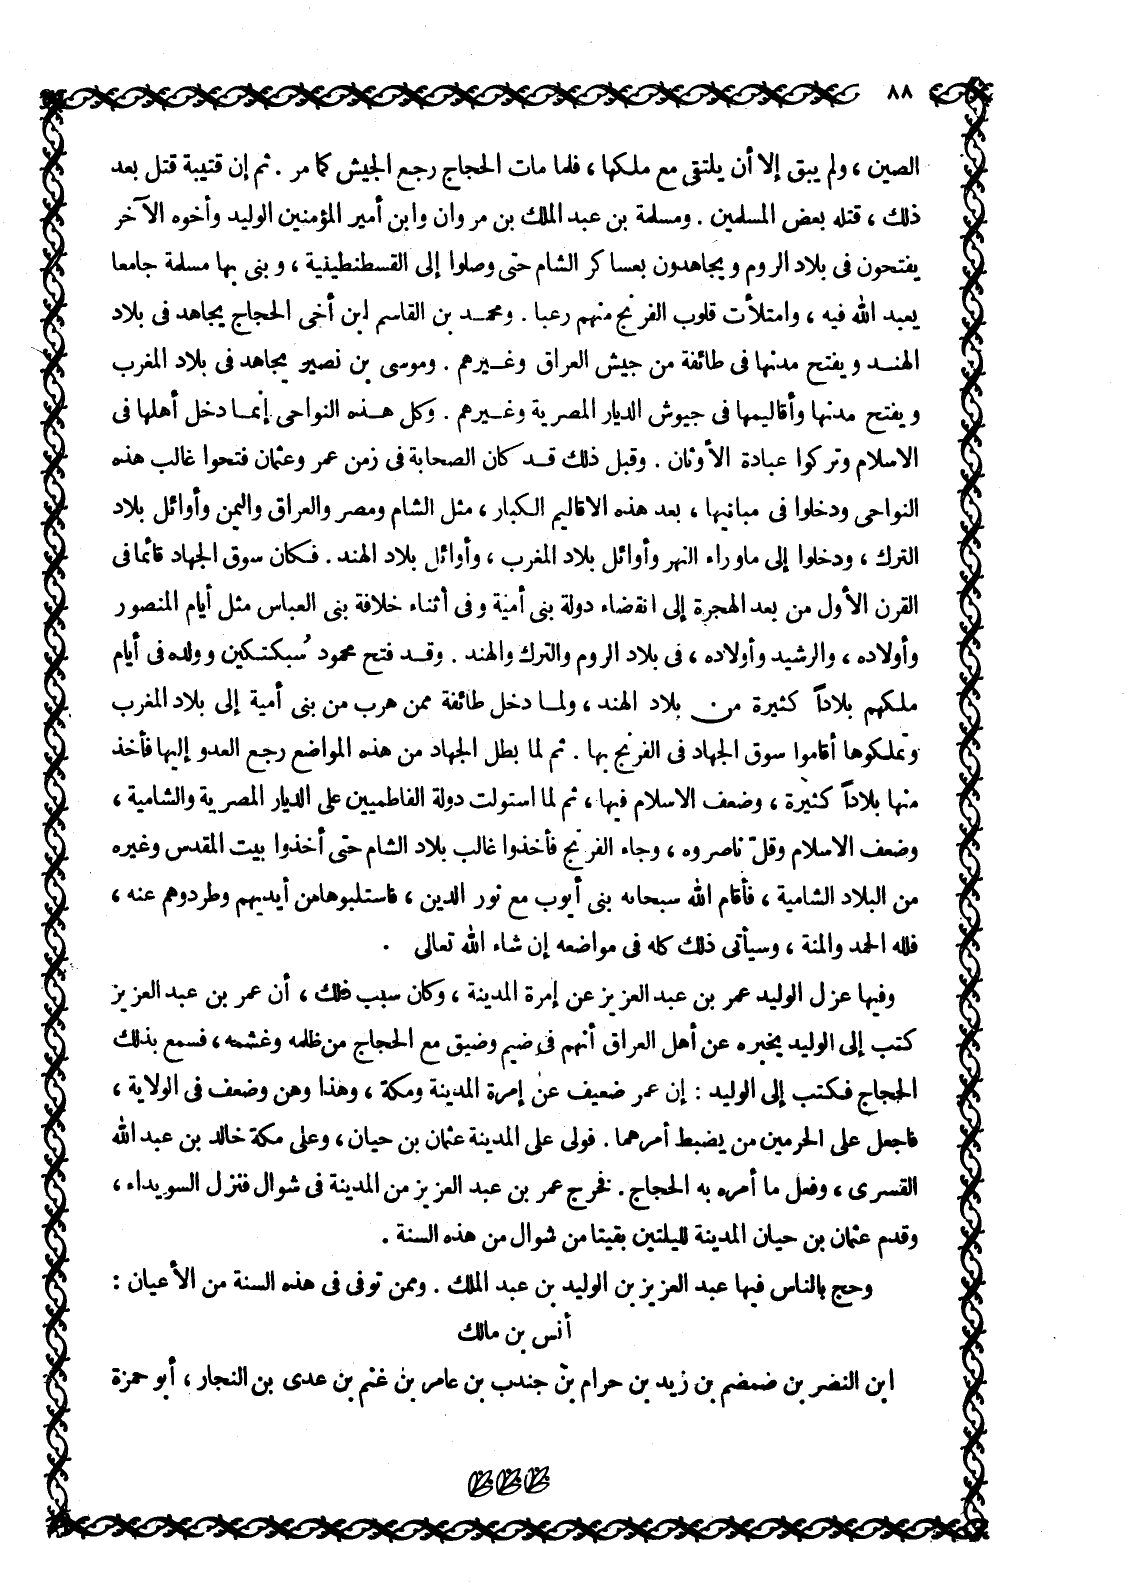 ٨٨
الصين ، ولم يبق إلا أن يلتقى مع ملكها ، فلما مات الحجاج رجع الجيش كما مر . ثم إن قتيبة قتل بعد
ذلك ، قتله بعض المسلمين . ومسلمة بن عبد الملك بن مروان وابن أمير المؤمنين الوليد وأخوه الآخر
يفتحون فى بلاد الروم ويجاهدون بعساكر الشام حتى وصلوا إلى القسطنطينية ، وبنى بها مسلمة جامعا
يعبد الله فيه ، وامتلأت قلوب الفرنج منهم رعبا . ومحمد بن القاسم ابن أخى الحجاج يجاهد فى بلاد
الهند ويفتح مدنها فى طائفة من جيش العراق وغيرهم . وموسى بن نصير يجاهد فى بلاد المغرب
ويفتح مدنها وأقاليمها فى جيوش الديار المصرية وغيرهم . وكل هذه النواحى إنما دخل أهلها فى
الاسلام وتركوا عبادة الأوثان . وقبل ذلك قد كان الصحابة فى زمن عمر وعثمان فتحوا غالب هذه
النواحى ودخلوا فى مبانيها ، بعد هذه الاقاليم الكبار ، مثل الشام ومصر والعراق واليمن وأوائل بلاد
الترك ، ودخلوا إلى ما وراء النهر وأوائل بلاد المغرب ، وأوائل بلاد الهند . فكان سوق الجهاد قائما فى
القرن الأول من بعد الهجرة إلى انقضاء دولة بنى أمية وفى أثناء خلافة بنى العباس مثل أيام المنصور
وأولاده ، والرشيد وأولاده ، فى بلاد الروم والترك والهند . وقد فتح محمود سُبكتكين وولده فى أيام
ملكهم بلاداً كثيرة من بلاد الهند ، ولما دخل طائفة ممن هرب من بنى أمية إلى بلاد المغرب
وتملكوها أقاموا سوق الجهاد فى الفرنج بها . ثم لما بطل الجهاد من هذه المواضع رجع العدو إليها فأخذ
منها بلاداً كثيرة ، وضعف الاسلام فيها ، ثم لما استولت دولة الفاطميين على الديار المصرية والشامية ،
وضعف الاسلام وقلّ ناصروه ، وجاء الفرنج فأخذوا غالب بلاد الشام حتى أخذوا بيت المقدس وغيره
من البلاد الشامية ، فأقام الله سبحانه بنى أيوب مع نور الدين ، فاستلبوها من أيديهم وطردوهم عنه ،
فلله الحمد والمنة ، وسيأتى ذلك كله فى مواضعه إن شاء الله تعالى .
وفيها عزل الوليد عمر بن عبد العزيز عن إمرة المدينة ، وكان سبب ذلك ، أن عمر بن عبد العزيز
كتب إلى الوليد يخبره عن أهل العراق أنهم فى ضيم وضيق مع الحجاج من ظلمه وغشمه ، فسمع بذلك
الحجاج فكتب إلى الوليد : إن عمر ضعيف عن إمرة المدينة ومكة ، وهذا وهن وضعف فى الولاية ،
فاجعل على الحرمين من يضبط أمرهما . فولى على المدينة عثمان بن حيان ، وعلى مكة خالد بن عبد الله
القسرى ، وفعل ما أمره به الحجاج . فخرج عمر بن عبد العزيز من المدينة فى شوال فنزل السويداء ،
وقدم عثمان بن حيان المدينة لليلتين بقيتا من شوال من هذه السنة .
وحج بالناس فيها عبد العزيز بن الوليد بن عبد الملك . وممن توفى فى هذه السنة من الأعيان :
أنس بن مالك
ابن النضر بن ضمضم بن زيد بن حرام بن جندب بن عامر بن غنم بن عدى بن النجار ، أبو حمزة